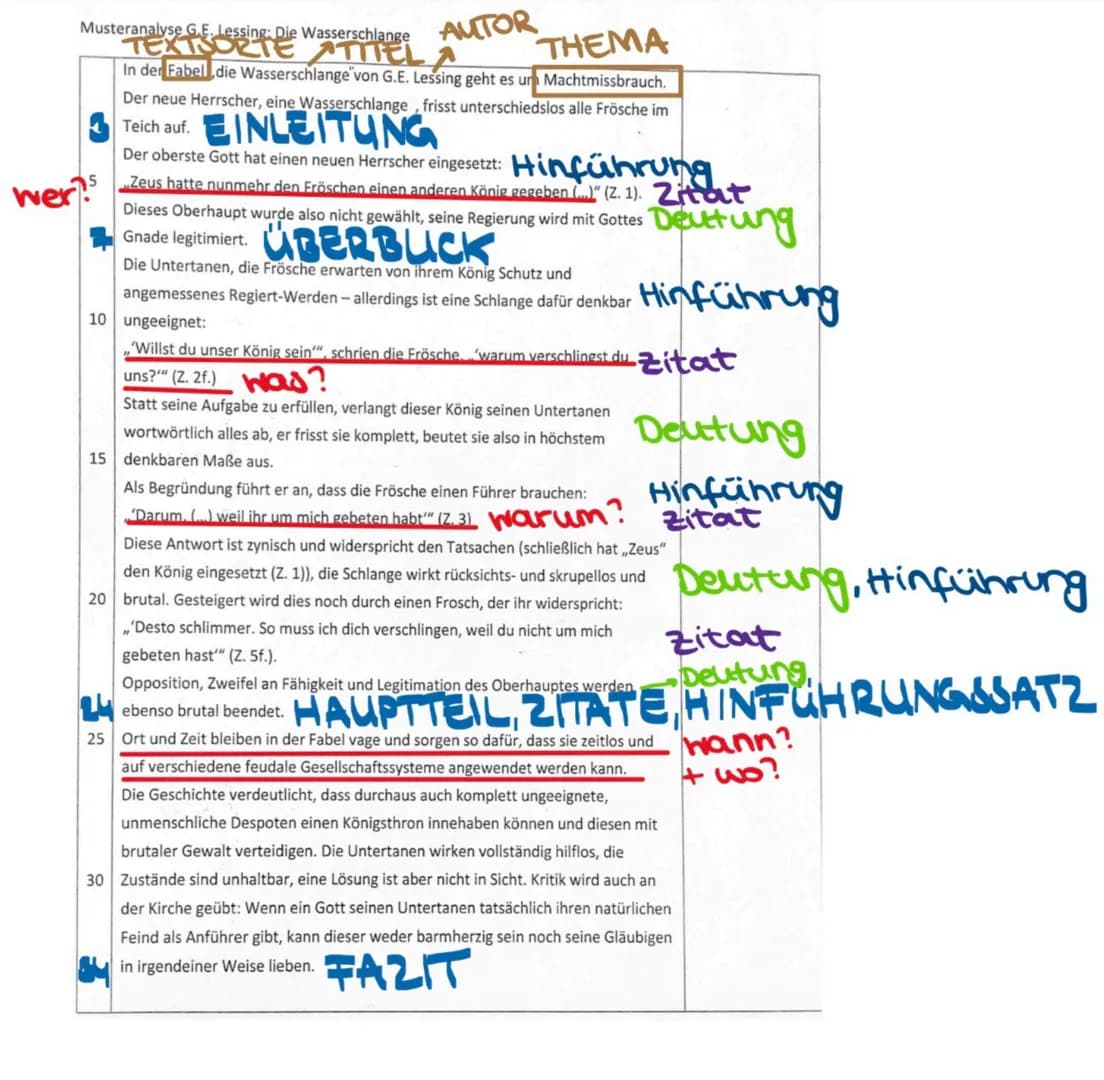 Musteranalyse G.E. Lessing: Die Wasserschlange AUTOR
TEXTSORTE TITEL THEMA
In der Fabel „die Wasserschlange“ von G.E. Lessing geht es um Machtmissbrauch.
Der neue Herrscher, eine Wasserschlange , frisst unterschiedslos alle Frösche im
3 Teich auf. EINLEITUNG
Der oberste Gott hat einen neuen Herrscher eingesetzt: Hinführung
wer? 5 „Zeus hatte nunmehr den Fröschen einen anderen König gegeben (...)“ (Z. 1). Zitat
Dieses Oberhaupt wurde also nicht gewählt, seine Regierung wird mit Gottes Deutung
7 Gnade legitimiert. ÜBERBLICK
Die Untertanen, die Frösche erwarten von ihrem König Schutz und
angemessenes Regiert-Werden – allerdings ist eine Schlange dafür denkbar Hinführung
10 ungeeignet:
„‘Willst du unser König sein‘“, schrien die Frösche. „‘warum verschlingst du Zitat
uns?‘“ (Z. 2f.) was?
Statt seine Aufgabe zu erfüllen, verlangt dieser König seinen Untertanen
wortwörtlich alles ab, er frisst sie komplett, beutet sie also in höchstem Deutung
15 denkbaren Maße aus.
Als Begründung führt er an, dass die Frösche einen Führer brauchen: Hinführung
„‘Darum, (...) weil ihr um mich gebeten habt‘“ (Z. 3) warum? Zitat
Diese Antwort ist zynisch und widerspricht den Tatsachen (schließlich hat „Zeus“
den König eingesetzt (Z. 1)), die Schlange wirkt rücksichts- und skrupellos und Deutung, Hinführung
20 brutal. Gesteigert wird dies noch durch einen Frosch, der ihr widerspricht:
„‘Desto schlimmer. So muss ich dich verschlingen, weil du nicht um mich Zitat
gebeten hast‘“ (Z. 5f.).
Opposition, Zweifel an Fähigkeit und Legitimation des Oberhauptes werden Deutung
24 ebenso brutal beendet. HAUPTTEIL, ZITATE, HINFÜHRUNGSSATZ
25 Ort und Zeit bleiben in der Fabel vage und sorgen so dafür, dass sie zeitlos und wann?
auf verschiedene feudale Gesellschaftssysteme angewendet werden kann. + wo?
Die Geschichte verdeutlicht, dass durchaus auch komplett ungeeignete,
unmenschliche Despoten einen Königsthron innehaben können und diesen mit
brutaler Gewalt verteidigen. Die Untertanen wirken vollständig hilflos, die
30 Zustände sind unhaltbar, eine Lösung ist aber nicht in Sicht. Kritik wird auch an
der Kirche geübt: Wenn ein Gott seinen Untertanen tatsächlich ihren natürlichen
Feind als Anführer gibt, kann dieser weder barmherzig sein noch seine Gläubigen
34 in irgendeiner Weise lieben. FAZIT